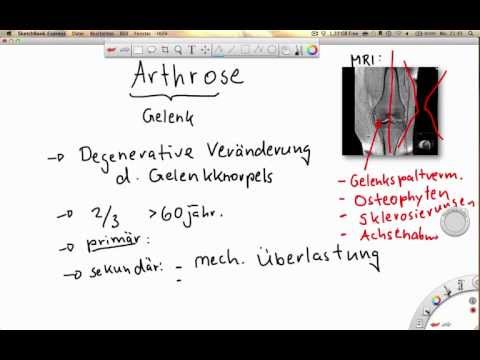 SketchBook Express
Bearbeiten
Bild
Fenster
Hilfe
Arthrose
Gelenk
→ Degenerative Veränderung
d. Gelenkknorpels
→ 2/3 >60jähr.
→ primär:
→ sekundär: - mech. Überlastung
-
MRI:
- Gelenkspaltverm.
- Osteophyten
- Sklerosierungen